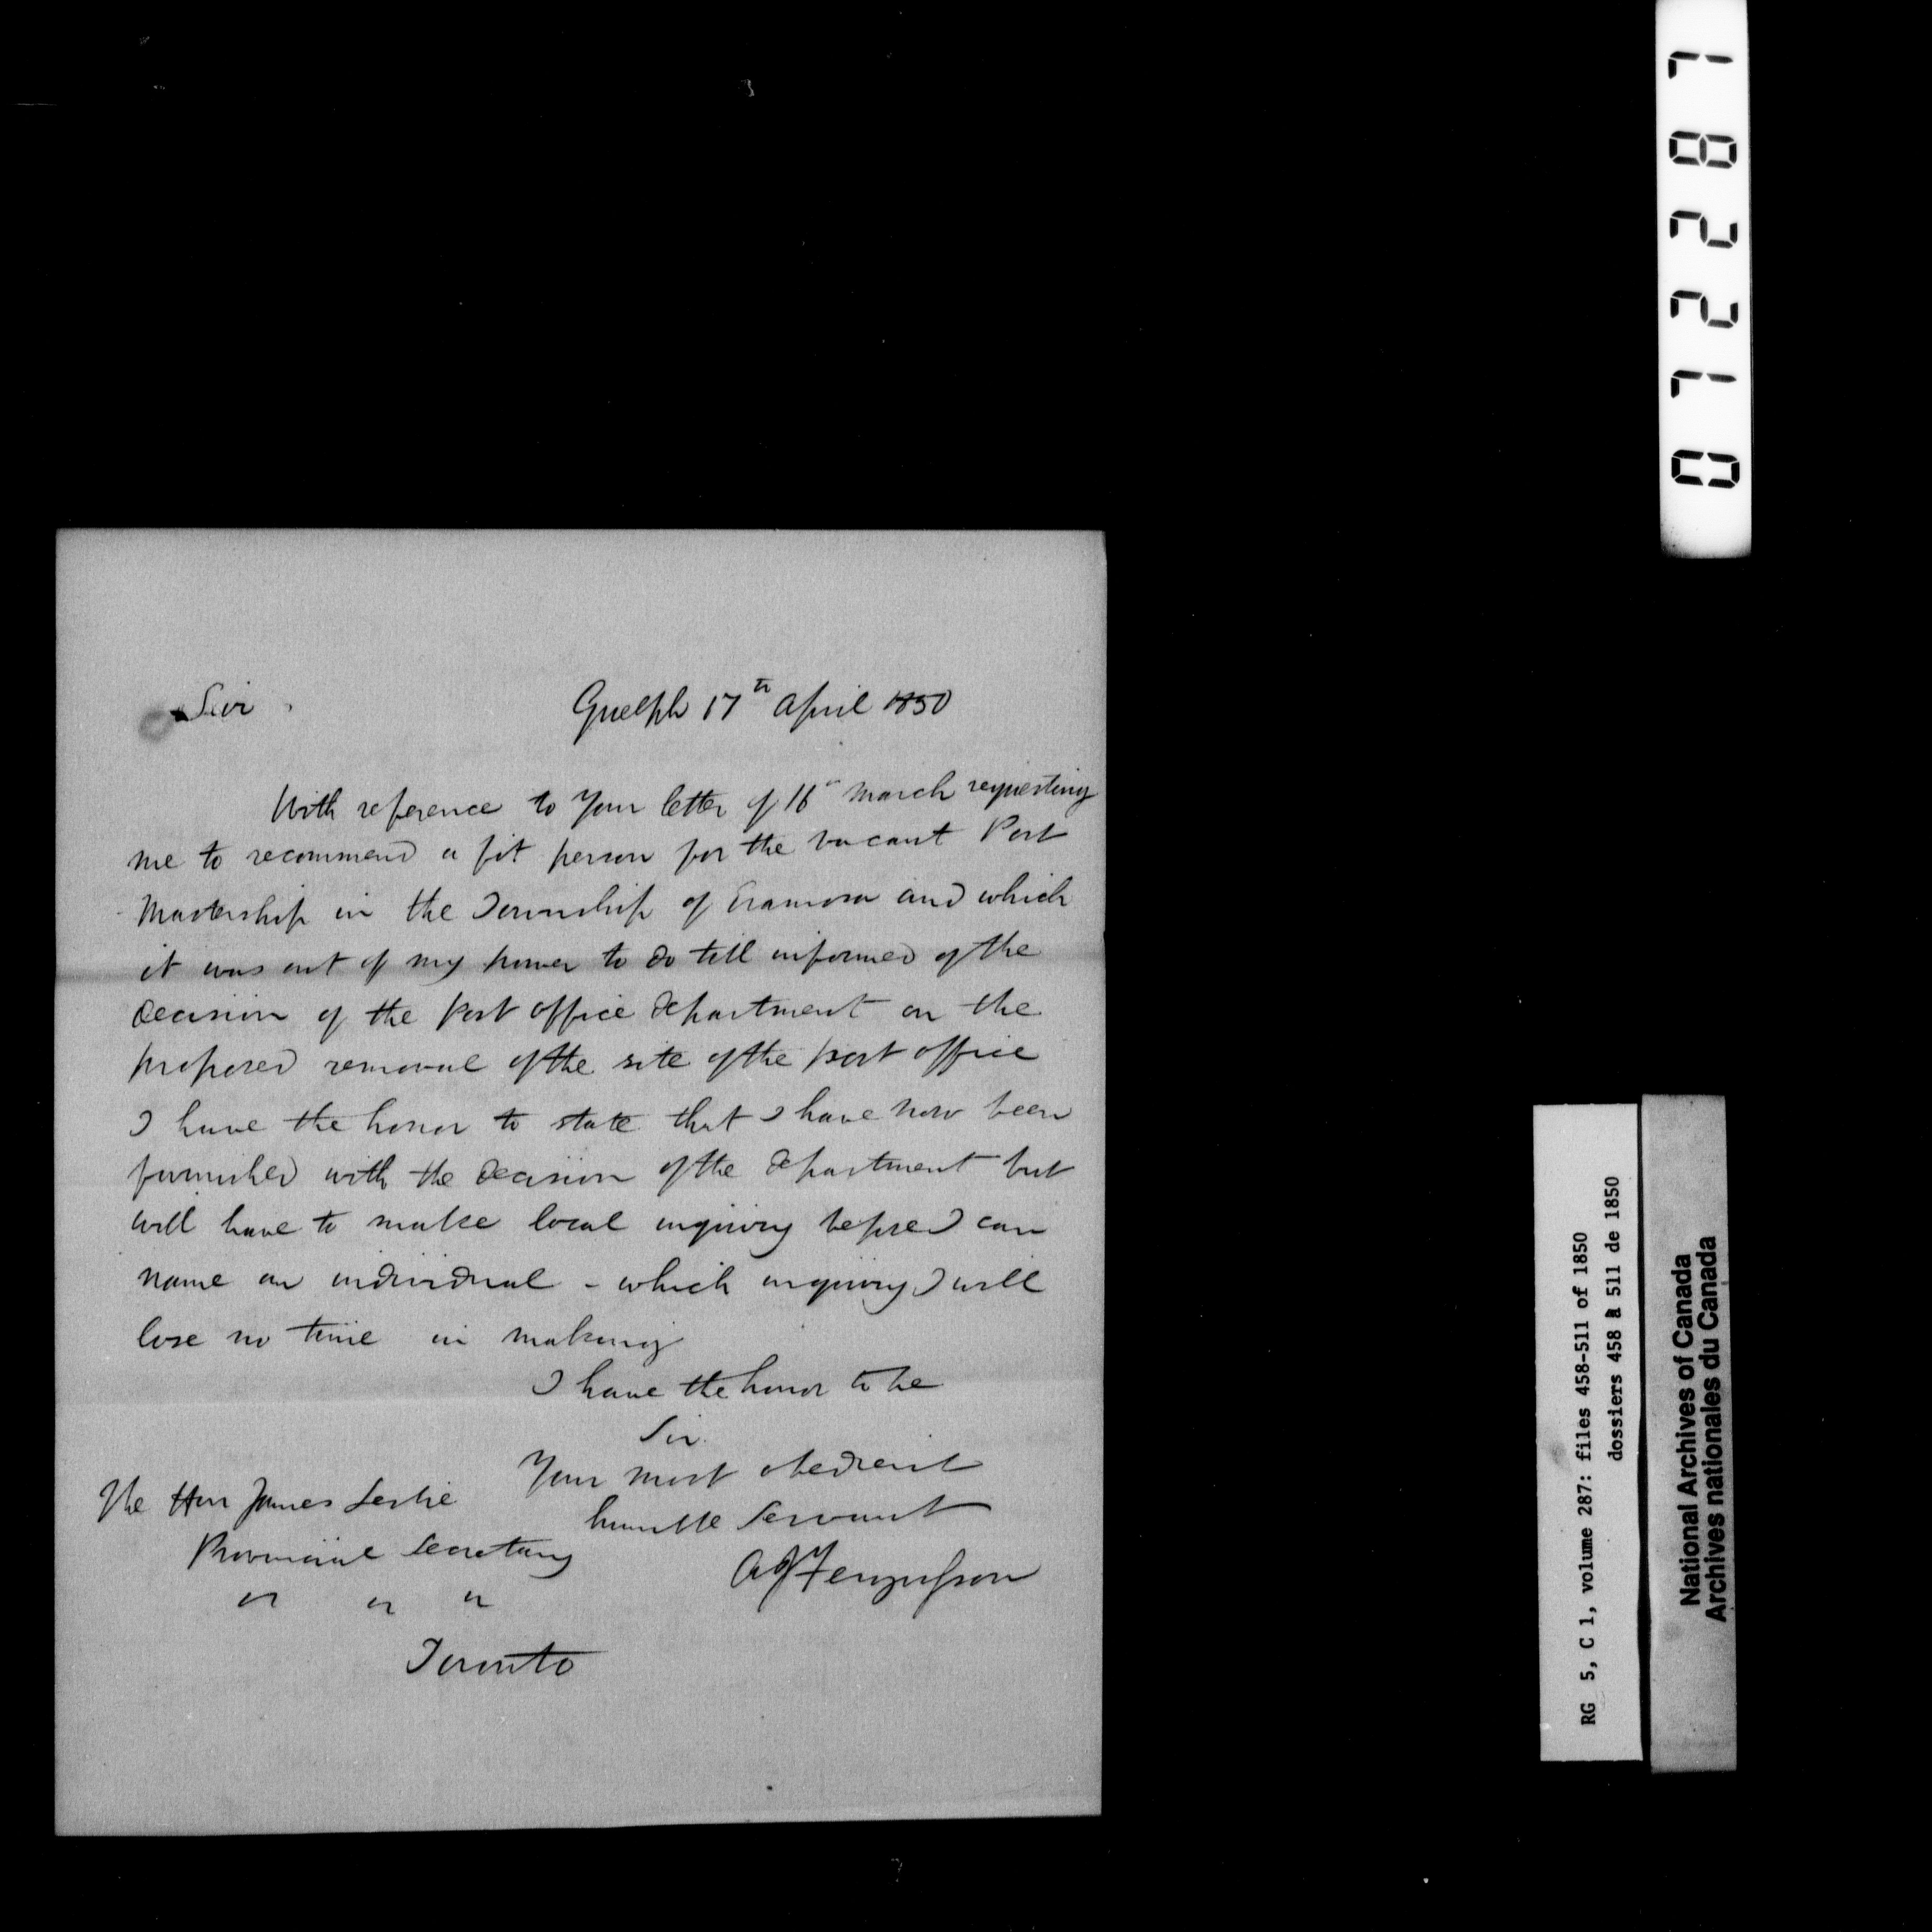 Sir
Guelph 17th April 1850
With reference to Your letter of 16th March requesting
me to recommend a fit person for the vacant Post
Mastership in the Township of Eramosa and which
it was out of my power to do till informed of the
decision of the Post office department on the
proposed removal of the site of the post office
I have the honor to state that I have now been
furnished with the decision of the department but
will have to make local inquiry before I can
name an individual - which inquiry I will
lose no time in making
I have the honor to be
Sir.
Your most obedient
humble Servant
A J Fergusson
The Hon James Leslie
Provincial Secretary
" " "
Toronto
072287
RG 5, C 1, volume 287: files 458-511 of 1850
dossiers 458 à 511 de 1850
National Archives of Canada
Archives nationales du Canada